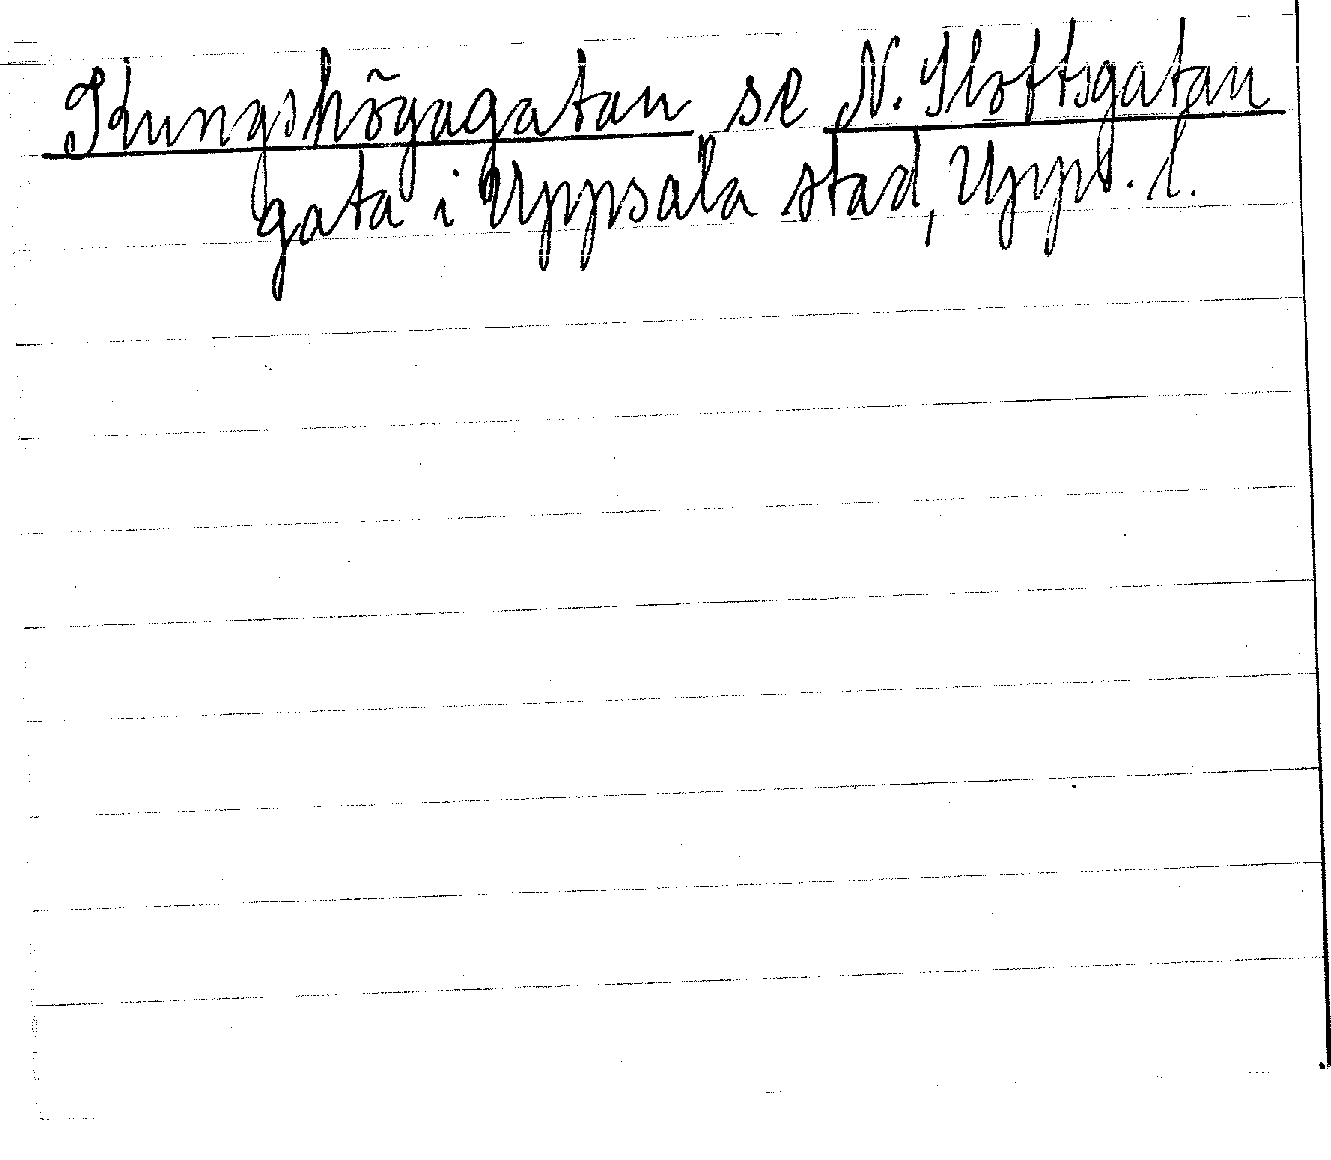 Kungshögagatan se N. Sloftsgatan
gata i Uppsala stad, Upps. l.